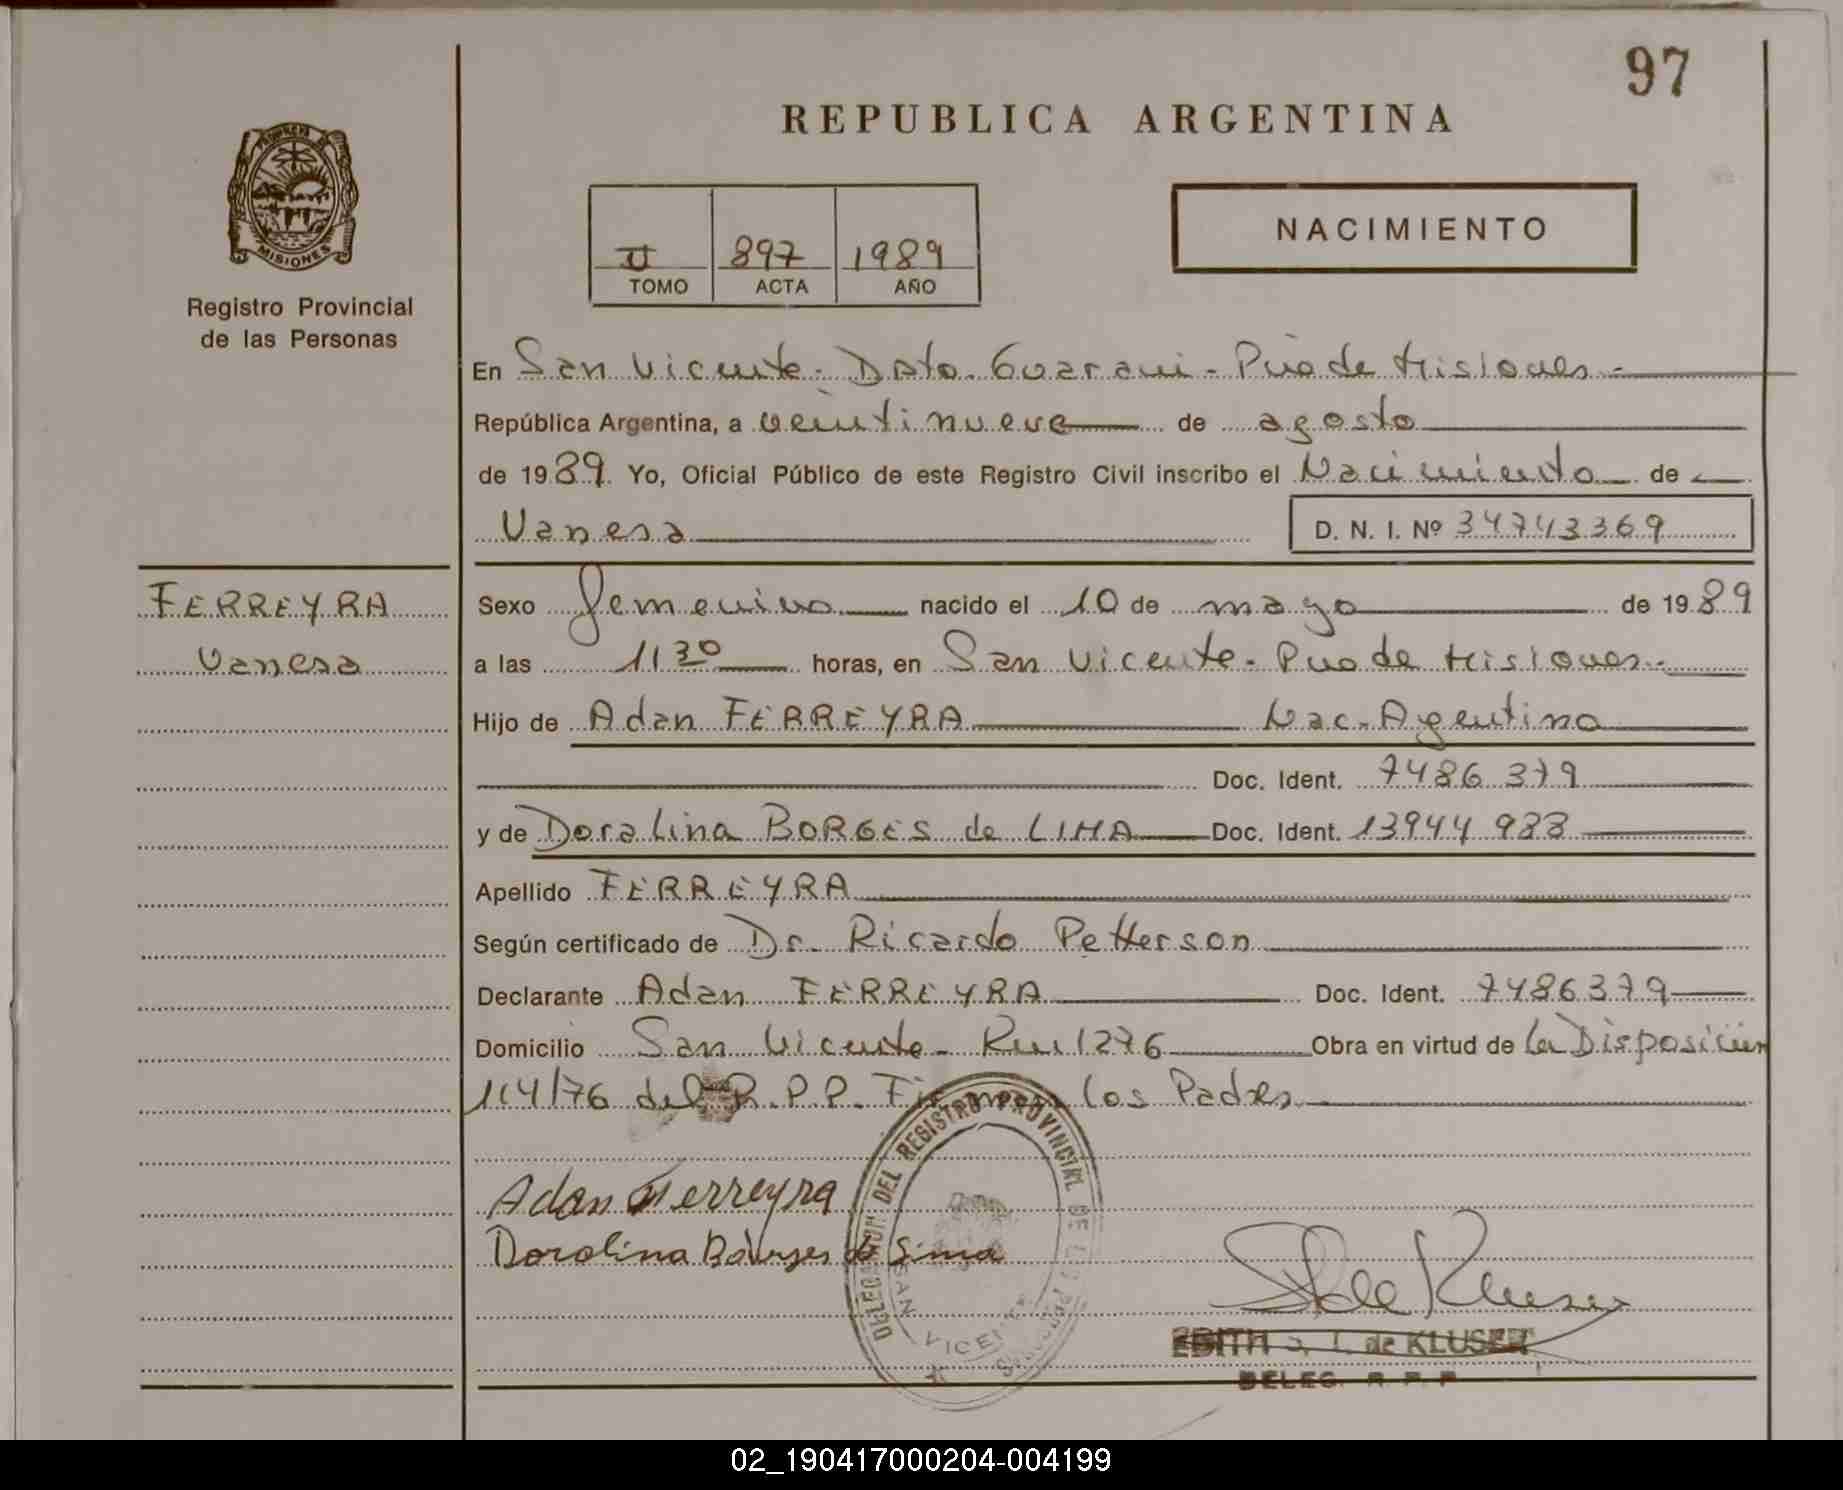 97
REPUBLICA ARGENTINA
MISIONES
Registro Provincial
de las Personas
II 897 1989
TOMO ACTA AÑO
NACIMIENTO
En San Vicente - Dpto. Guarani - Pcia de Misiones -
República Argentina, a veintinueve de agosto
de 1989. Yo, Oficial Público de este Registro Civil inscribo el Nacimiento de
Vanesa D. N. I. Nº 34743369
FERREYRA
Vanesa
Sexo femenino nacido el 10 de mayo de 1989
a las 11 30 horas, en San Vicente - Pcia de Misiones -
Hijo de Adan FERREYRA Nac. Agentina
Doc. Ident. 7486 379
y de Doralina BORGES de LIMA Doc. Ident. 13944 988
Apellido FERREYRA
Según certificado de Dr. Ricardo Petterson
Declarante Adan FERREYRA Doc. Ident. 7486379
Domicilio San Vicente - Km 1276 Obra en virtud de la Disposición
114/76 del R.P.P. Firman los Padres
Adan Ferreyra
Dorolina Borges de Lima
DELEGACION DEL REGISTRO PROVINCIAL DE LAS PERSONAS
SAN VICENTE
EDITH de KLUSER
DELEG. R. P. P
02_190417000204-004199